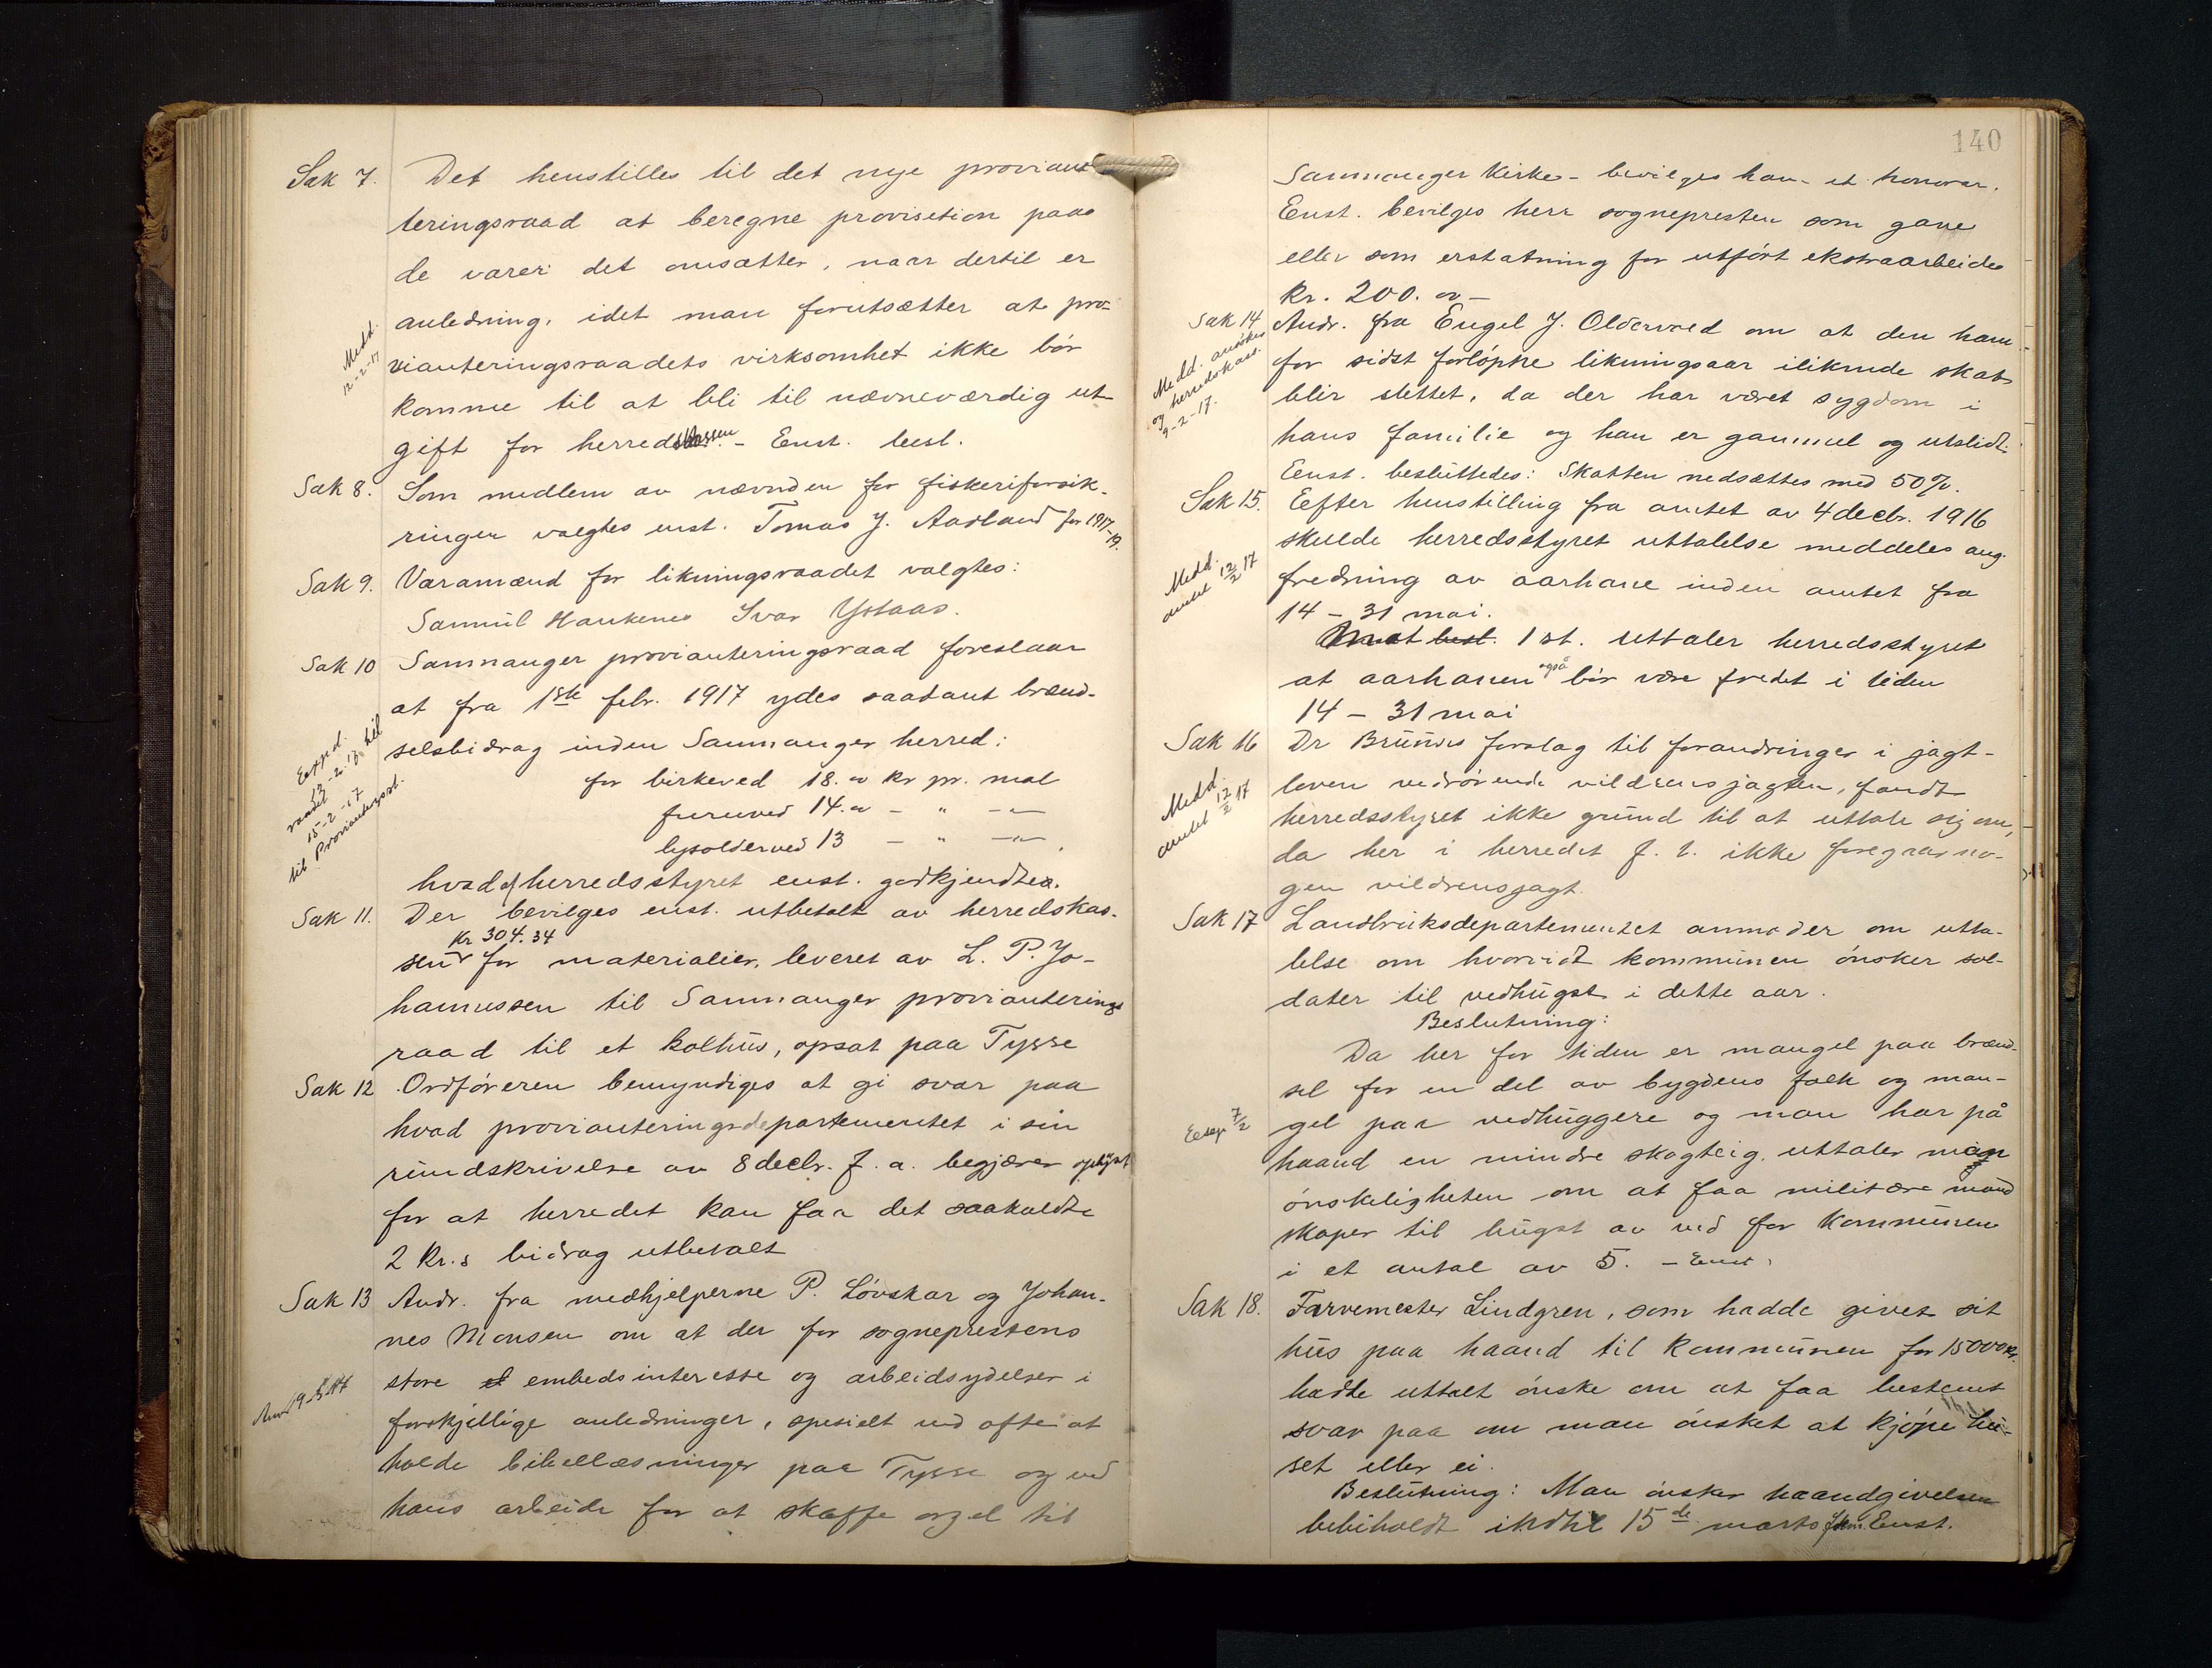 Sak 7. Det henstilles til det nye proviant
teringsraad at beregne provisetion paa
de varer det omsætter, naar dertil er
anledning, idet man forutsætter at pro-
Medd. 12-2-17
vianteringsraadets virksomhet ikke bør
komme til at bli til nævneværdig ut-
gift for herredskassen. - Enst. besl.
Sak 8. Som medlem av nævnden for fiskeriforsik-
ringen valgtes enst. Tomas J. Aadland for 1917-19.
Sak 9. Varamænd for likningsraadet valgtes:
Samuil Haukenes Ivar Ystaas.
Sak 10 Samnanger provianteringsraad foreslaar
at fra 1ste febr. 1917 ydes saadant brænd-
selsbidrag inden Samnanger herred:
for birkeved 18.oo kr pr. mal
furuved 14.oo - " -"-
lysolderved 13 - " -"-,
til Proviantngsst.
15-2-17
hvad herredsstyret enst. godkjendte.
Sak 11. Der bevilges enst. utbetalt av herredskas-
Kr 304.34
sen for materialier, leveret av L. P. Jo-
hannessen til Samnanger provianterings
raad til et kolhus, opsat paa Tysse
Sak 12 Ordføreren bemyndiges at gi svar paa
hvad provianteringsdepartementet i sin
rundskrivelse av 8 decbr. f. a. begjærer oplyst
for at herredet kan faa det saakaldte
2 kr.s bidrag utbetalt
Sak 13 Andr. fra medhjelperne P. Løvskar og Johan-
nes Monsen om at der for sogneprestens
store embedsinteresse og arbeidsydelser i
forskjellige anledninger, spesielt ved ofte at
holde bibellæsninger paa Tysse og ved
hans arbeide for at skaffe orgel til
140
Samnanger Kirke - bevilges han - et honorar.
Enst. bevilges herr sognepresten som gave
eller som erstatning for utført ekstraarbeide
kr. 200.oo -
Sak 14 Andr. fra Engel J. Oldervred om at den ham
Medd. ansøker og herredskas. 9-2-17.
for sidst forløpne likningsaar iliknede skat
blir slettet, da der har været sygdom i
hans familie og han er gammel og utslidt.
Enst. besluttedes: Skatten nedsættes med 50%.
Sak 15. Eefter henstilling fra amtet av 4 decbr. 1916
skulde herredsstyret uttalelse meddeles ang.
Medd. amtet 12/2 17
fredning av aarhane inden amtet fra
14 - 31 mai.
Mot 1 st. uttaler herredsstyret
at aarhanen også bør være fredet i tiden
14 - 31 mai
Sak 16 Dr Bruuns forslag til forandringer i jagt-
loven vedrørende vildrensjagten, fandt
Medd. amtet 12/2 17
herredsstyret ikke grund til at uttale sig om,
da her i herredet f. t. ikke foregaar no-
gen vildrensjagt.
Sak 17 Landbruksdepartementet anmoder om utta-
lelse om hvorvidt kommunen ønsker sol-
dater til vedhugst i dette aar.
Beslutning:
Da her for tiden er mangel paa brænd-
sel for en del av bygdens folk og man-
gel paa vedhuggere og man har på
haand en mindre skogteig, uttaler man
ønskeligheten om at faa militære mand
skaper til hugst av ved for kommunen
i et antal av 5. - Enst.
Sak 18. Farvemester Lindgren, som hadde givet sit
hus paa haand til kommunen for 15000 kr.
hadde uttalt ønske om at faa bestemt
svar paa om man ønsket at kjøpe hu-
set eller ei.
Beslutning: Man ønsker haandgivelsen
bibeholdt indtil 15de marts Enst.